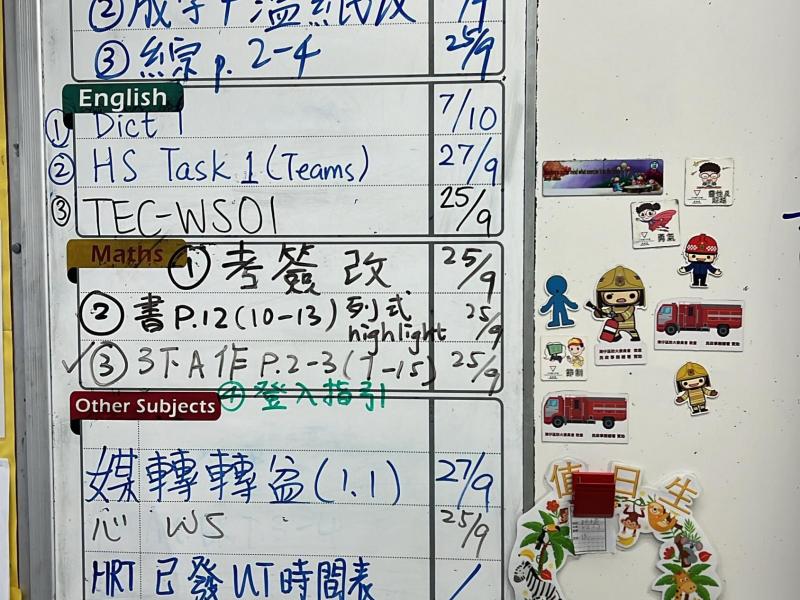 ② 成
③ 綜 p. 2-4 25/9
English
① Dict 1 7/10
② HS Task 1 (Teams) 27/9
③ TEC-WS01 25/9
Maths
① 考簽改 25/9
② 書 P.12 (10-13) 列式 highlight 25/9
✓ ③ 3下A作 P.2-3 (1-15) 25/9
④ 登入指引
Other Subjects
媒轉轉盆 (1.1) 27/9
心 WS 25/9
HRT 已發UT時間表 /
勇氣
節制
值日生